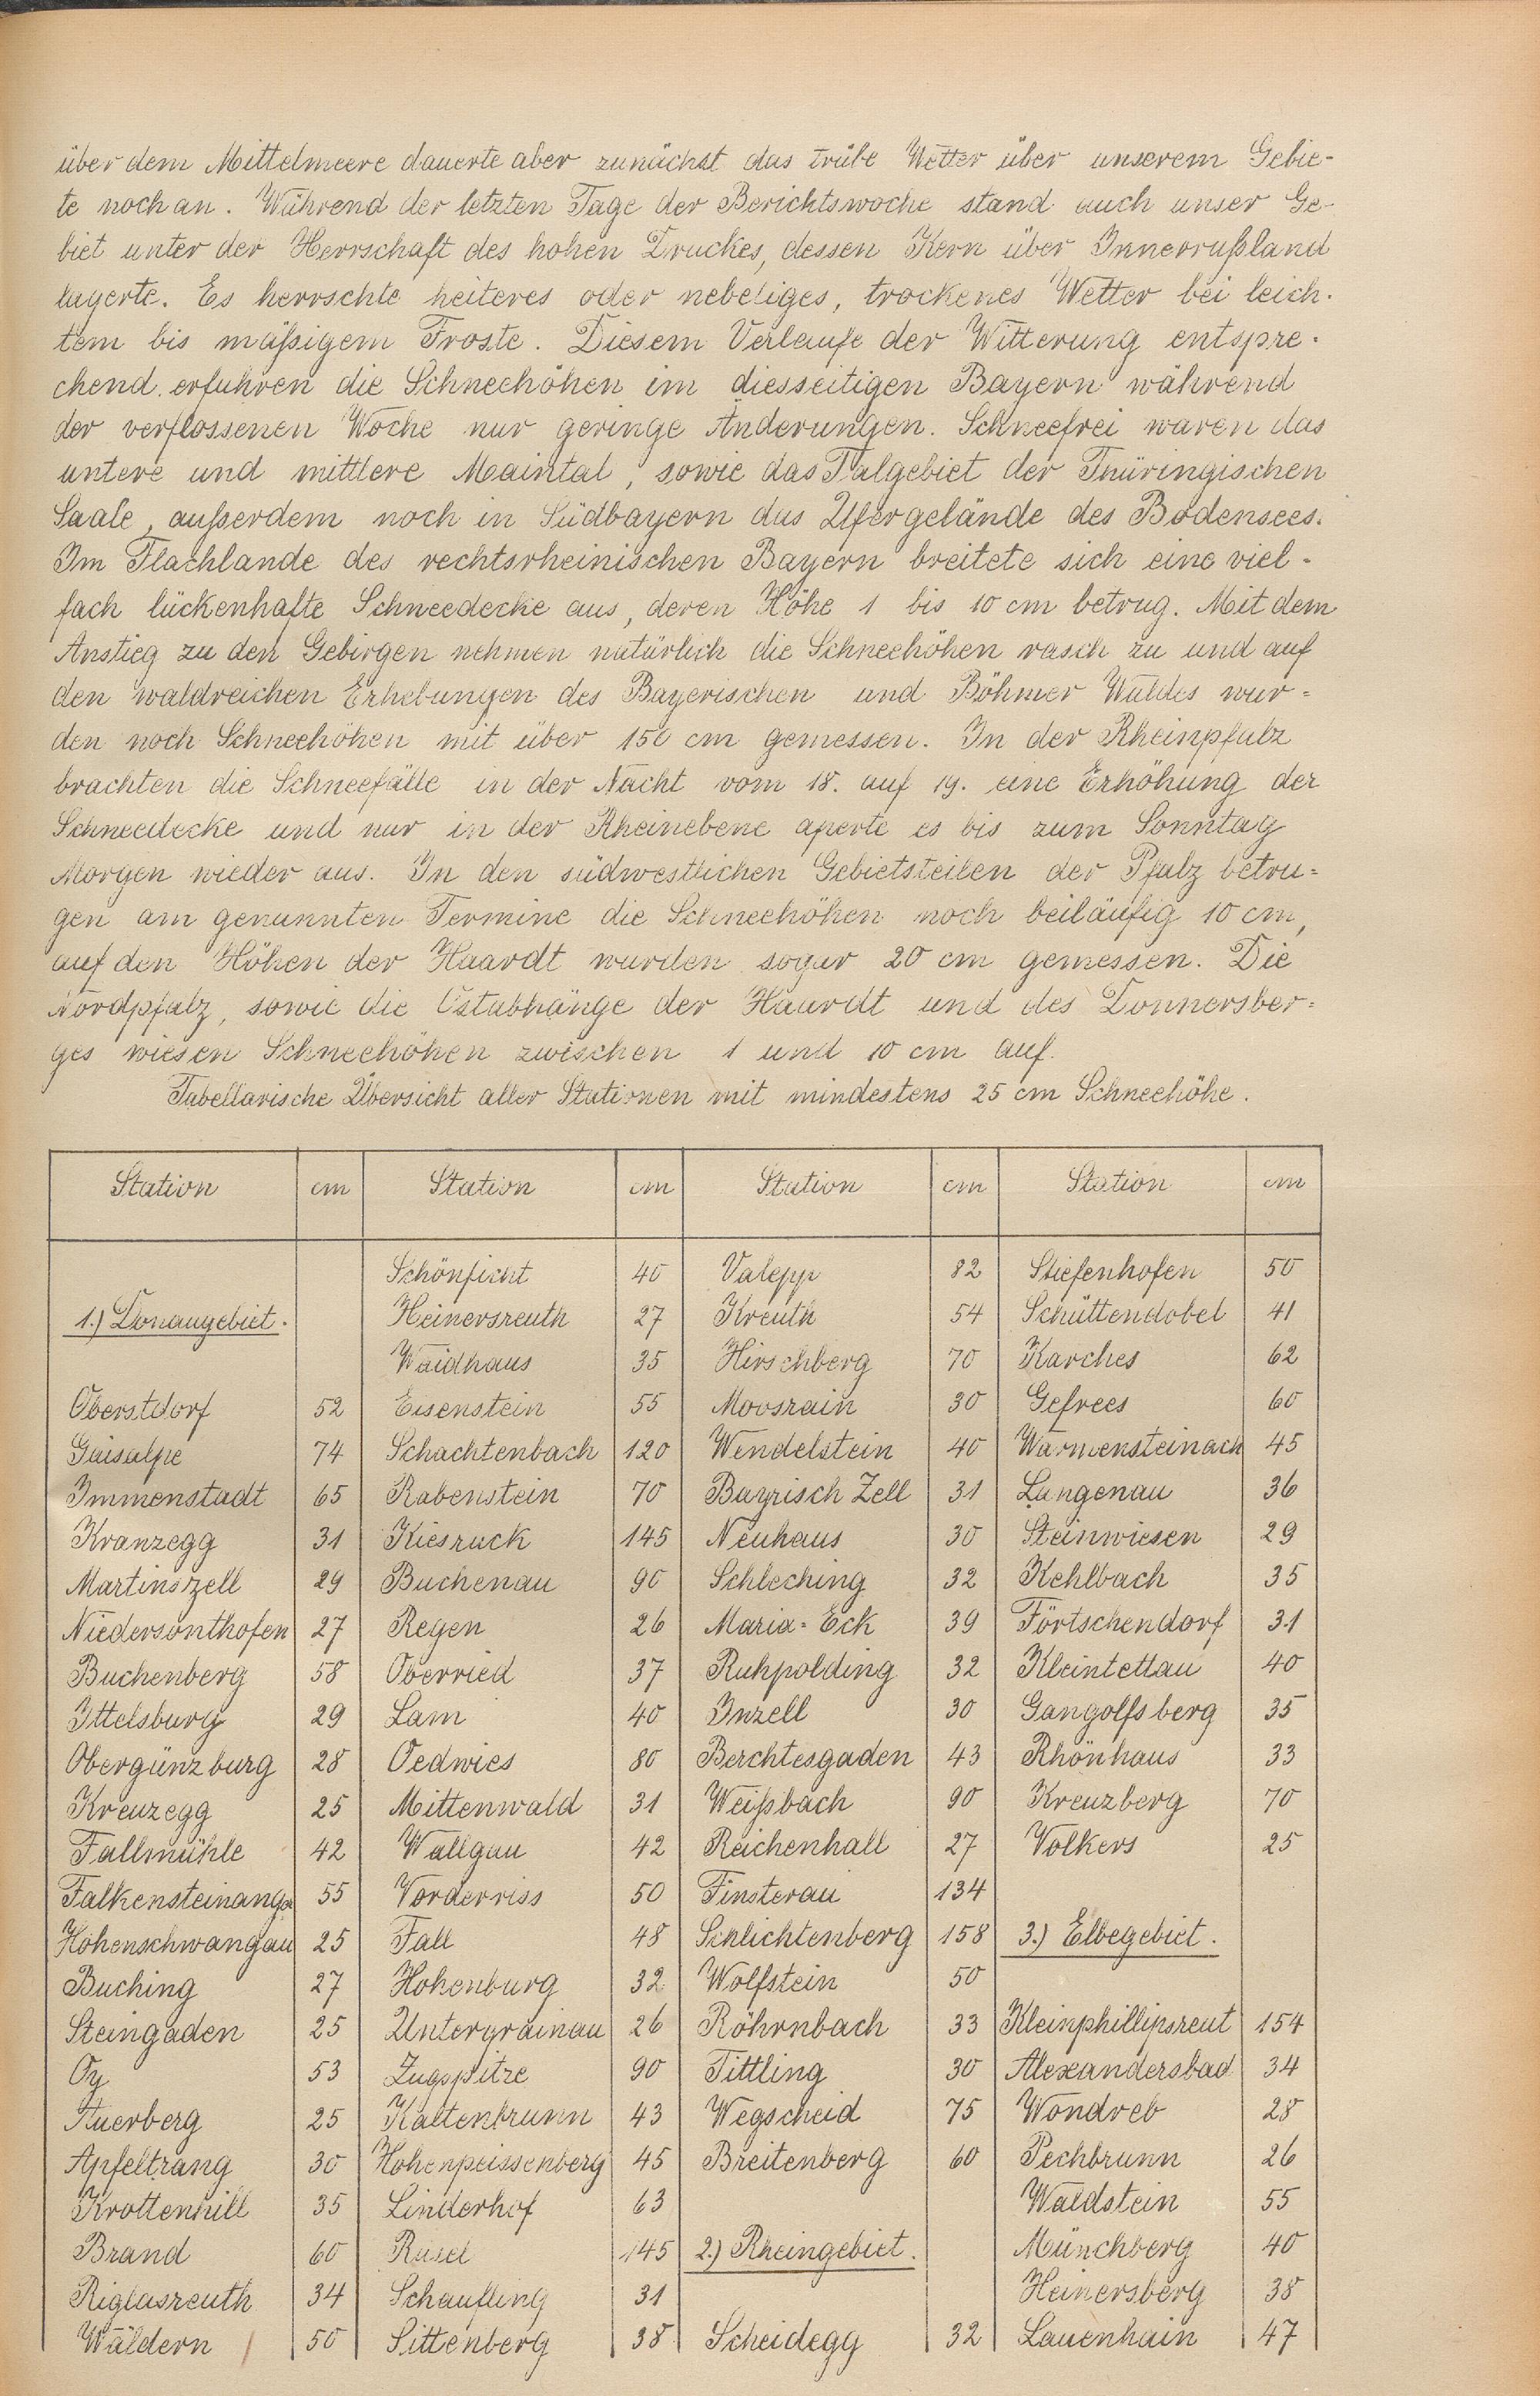 über dem Mittelmeere dauerte aber zunächst das trübe Wetter über unserem Gebie-
te noch an. Während der letzten Tage der Berichtswoche stand auch unser Ge-
biet unter der Herrschaft des hohen Druckes, dessen Kern über Innerrußland
lagerte. Es herrschte heiteres oder nebeliges, trockenes Wetter bei leich-
tem bis mäßigem Froste. Diesem Verlaufe der Witterung entspre-
chend erfuhren die Schneehöhen im diesseitigen Bayern während
der verflossenen Woche nur geringe Änderungen. Schneefrei waren das
untere und mittlere Maintal, sowie das Talgebiet der Thüringischen
Saale, außerdem noch in Südbayern das Ufergelände des Bodensees.
Im Flachlande des rechtsrheinischen Bayern breitete sich eine viel-
fach lückenhafte Schneedecke aus, deren Höhe 1 bis 10 cm betrug. Mit dem
Anstieg zu den Gebirgen nehmen natürlich die Schneehöhen rasch zu und auf
den waldreichen Erhebungen des Bayerischen und Böhmer Waldes wur=
den noch Schneehöhen mit über 150 cm gemessen. In der Rheinpfalz
brachten die Schneefälle in der Nacht vom 18. auf 19. eine Erhöhung der
Schneedecke und nur in der Rheinebene aperte es bis zum Sonntag
Morgen wieder aus. In den südwestlichen Gebietsteilen der Pfalz betru=
gen am genannten Termine die Schneehöhen noch beiläufig 10 cm,
auf den Höhen der Haardt wurden sogar 20 cm gemessen. Die
Nordpfalz, sowie die Ostabhänge der Haardt und des Donnersber=
ges wiesen Schneehöhen zwischen 1 und 10 cm auf.
Tabellarische Übersicht aller Stationen mit mindestens 25 cm Schneehöhe.
Station cm Station cm Station cm Station cm
Schönficht 40 Valepp 82 Stiefenhofen 50
1.) Donaugebiet. Heinersreuth 27 Kreuth 54 Schüttendobel 41
Waidhaus 35 Hirschberg 70 Karches 62
Oberstdorf 52 Eisenstein 55 Moosrain 30 Gefrees 60
Gaisalpe 74 Schachtenbach 120 Wendelstein 40 Warmensteinach 45
Immenstadt 65 Rabenstein 70 Bayrisch Zell 31 Langenau 36
Kranzegg 31 Kiesruck 145 Neuhaus 30 Steinwiesen 29
Martinszell 29 Buchenau 90 Schleching 32 Kehlbach 35
Niedersonthofen 27 Regen 26 Maria=Eck 39 Förtschendorf 31
Buchenberg 58 Oberried 37 Ruhpolding 32 Kleintettau 40
Ittelsburg 29 Lam 40 Inzell 30 Gangolfsberg 35
Obergünzburg 28 Oedwies 80 Berchtesgaden 43 Rhönhaus 33
Kreuzegg 25 Mittenwald 31 Weißbach 90 Kreuzberg 70
Fallmühle 42 Wallgau 42 Reichenhall 27 Volkers 25
55 Vorderriss 50 Finsterau 134
Hohenschwangau 25 Fall 48 Schlichtenberg 158 3.) Elbegebiet.
Buching 27 Hohenburg 32 Wolfstein 50
Steingaden 25 Untergrainau 26 Röhrnbach 33 Kleinphillipsreut 154
Oy 53 Zugspitze 90 Tittling 30 Alexandersbad 34
Auerberg 25 Kaltenbrunn 43 Wegscheid 75 Wondreb 28
Apfeltrang 30 Hohenpeissenberg 45 Breitenberg 60 Pechbrunn 26
35 Linderhof 63 Waldstein 55
Brand 60 Rusel 145 2.) Rheingebiet. Münchberg 40
Riglasreuth 34 Schaufling 31 Heinersberg 38
Wäldern 50 Sittenberg 38 Scheidegg 32 Lauenhain 47